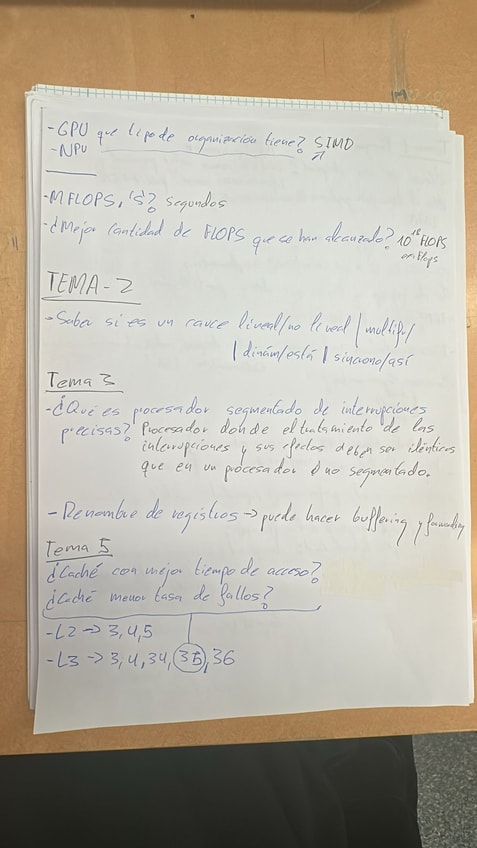 - GPU que tipo de organización tiene? SIMD
- NPU
- MFLOPS, "S"? segundos
- ¿Mejor cantidad de FLOPS que se han alcanzado? 10^18 FLOPS
exaflops
TEMA-2
- Saber si es un cauce lineal/no lineal | multifu/
| dinám/está | sincrono/así
Tema 3
- ¿Qué es procesador segmentado de interrupciones
precisas? Procesador donde el tratamiento de las
interrupciones y sus efectos deben ser idénticos
que en un procesador no segmentado.
- Renombre de registros → puede hacer buffering y forwarding
Tema 5
¿Caché con mejor tiempo de acceso?
¿Caché menor tasa de fallos?
- L2 → 3, 4, 5
- L3 → 3, 4, 34, 35, 36